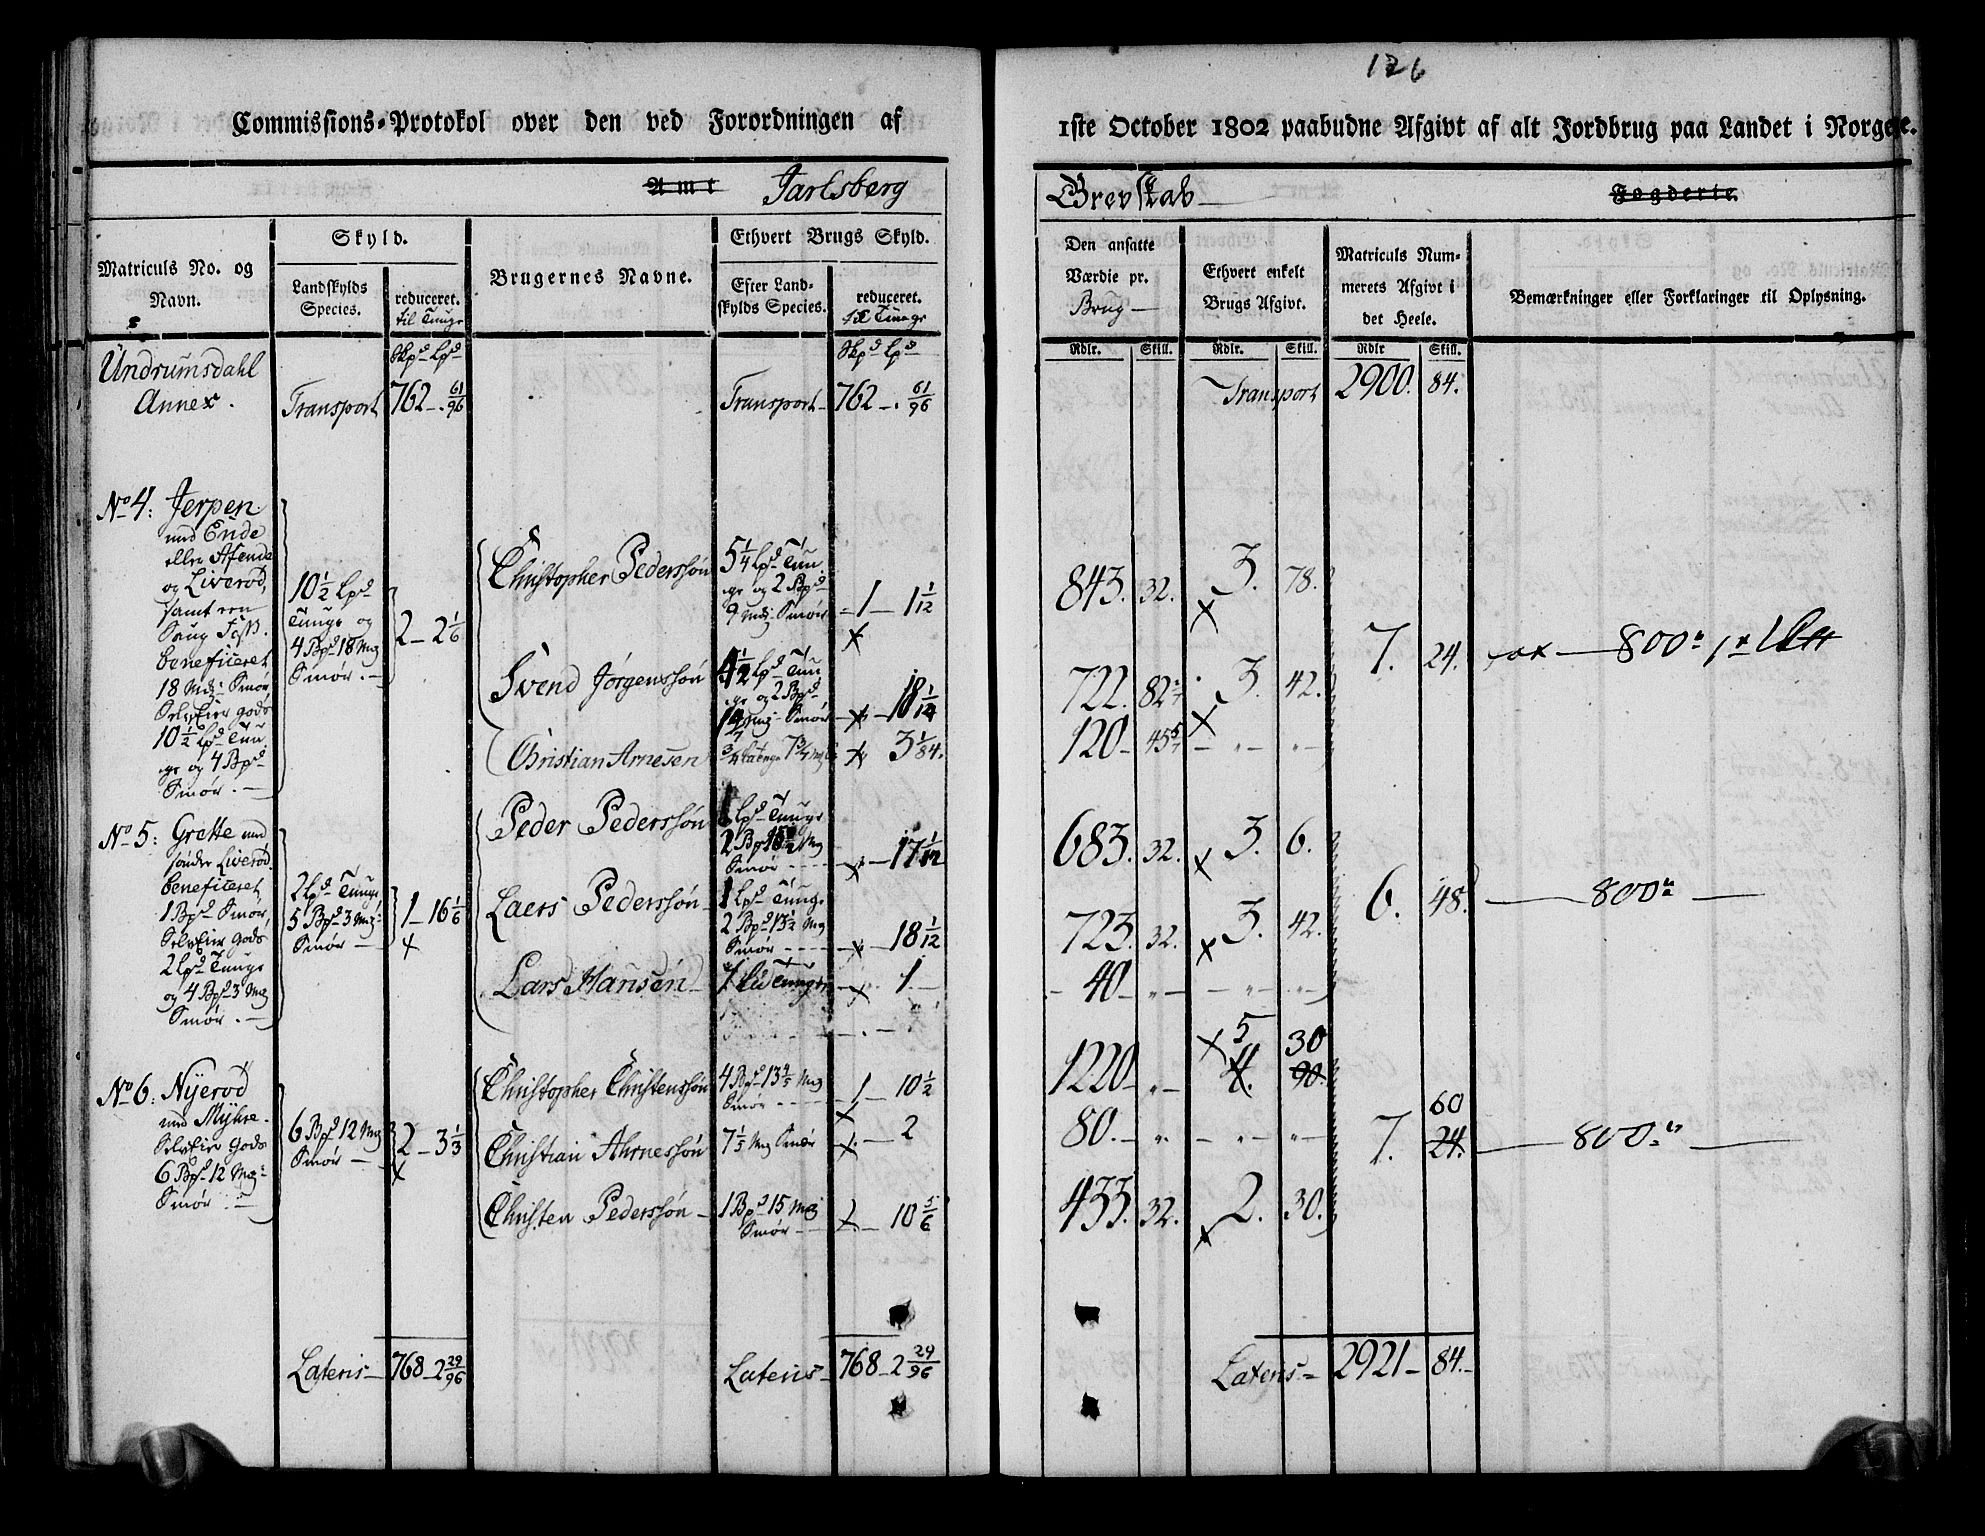 126
Commissions-Protokol over den ved Forordningen af
1ste October 1802 paabudne Afgivt af alt Jordbrug paa Landet i Norge.
Amt Jarlsberg
Grevskab
Fogderie
Matriculs No. og Navn.
Skyld.
Landskylds Species.
reduceret. til Tunge
Brugernes Navne.
Ethvert Brugs Skyld.
Efter Landskylds Species.
reduceret. til Tunge
Den ansatte Værdie pr. Brug
Ethvert enkelt Brugs Afgivt.
Matriculs Nummerets Afgivt i det Heele.
Bemærkninger eller Forklaringer til Oplysning.
Skpd Lpd
Skpd Lpd
Rdlr. Skill. Rdlr. Skill. Rdlr Skill.
Undrumsdahl
Annex.
Transport 762 - . 61/96
Transport 762 - . 61/96
Transport 2900. 84.
No 4: Jerpen
med Ende
eller Afende
og Liverød,
samt een
Saug
beneficeret
18 Mk: Smør,
SelvEier gods
10 1/2 Lpd Tun
ge og 4 Bpd
Smør.
10 1/2 Lpd
Tunge og
4 Bpd 18 Mk
Smør.
2 - 2 1/6
Christopher Pederssøn 5 1/4 Lpd Tun
ge og 2 Bpd
9 Mk: Smør 1 - 1 1/12
843. 32. 3. 78.
Svend Jørgenssøn 4 1/2 Lpd Tun
ge og 2 Bpd
Smør 18 1/14
722. 82 3. 42.
7. 24. 800
Christian Arnesen 3 1/84.
120 - 45 5/7 - " - " -
No 5: Grette med
søndre Liverød
beneficeret
1 Bpd Smør,
SelvEier Gods
2 Lpd Tunge
og 4 Bpd 3 Mk
Smør.
2 Lpd Tunge
5 Bpd 3 Mk:
Smør
1 - 16 1/6
Peder Pederssøn 1 Lpd Tunge
2 Bpd Mk
Smør 17 1/12
683. 32. 3. 6.
Laers Pederssøn 1 Lpd Tunge
2 Bpd 13 1/2 Mk
Smør 18 1/12
723. 32. 3. 42.
6. 48. 800
Lars Hansen 1 Lpd Tunge 1.
40 - " - " - " -
No 6: Nyerød
med Myhre
SelvEier Gods
6 Bpd 12 Mk:
Smør.
6 Bpd 12 Mk
Smør
2 - 3 1/3
Christopher Christenssøn 4 Bpd 13 4/5 Mk
Smør 1 - 10 1/2
1220 - " - 5 30
4. 90.
Christian Ahrnessøn 7 1/5 Mk Smør 2
80. - " - " - " -
60
7. 24. 800
Christen Pederssøn 1 Bpd 15 Mk
Smør 10 5/6
433. 32. 2. 30.
Lateris 768 - 2 29/96
Lateris 768 - 2 29/96
Lateris 2921 - 84.